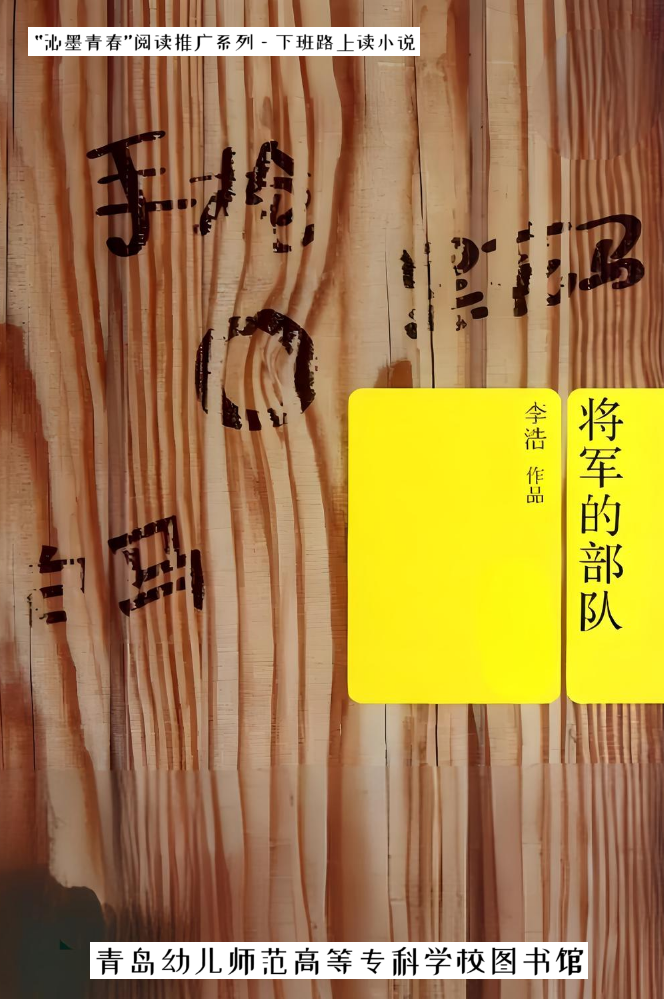 “沁墨青春”阅读推广系列 - 下班路上读小说
手枪
白马
将军的部队
李浩 作品
青岛幼儿师范高等专科学校图书馆